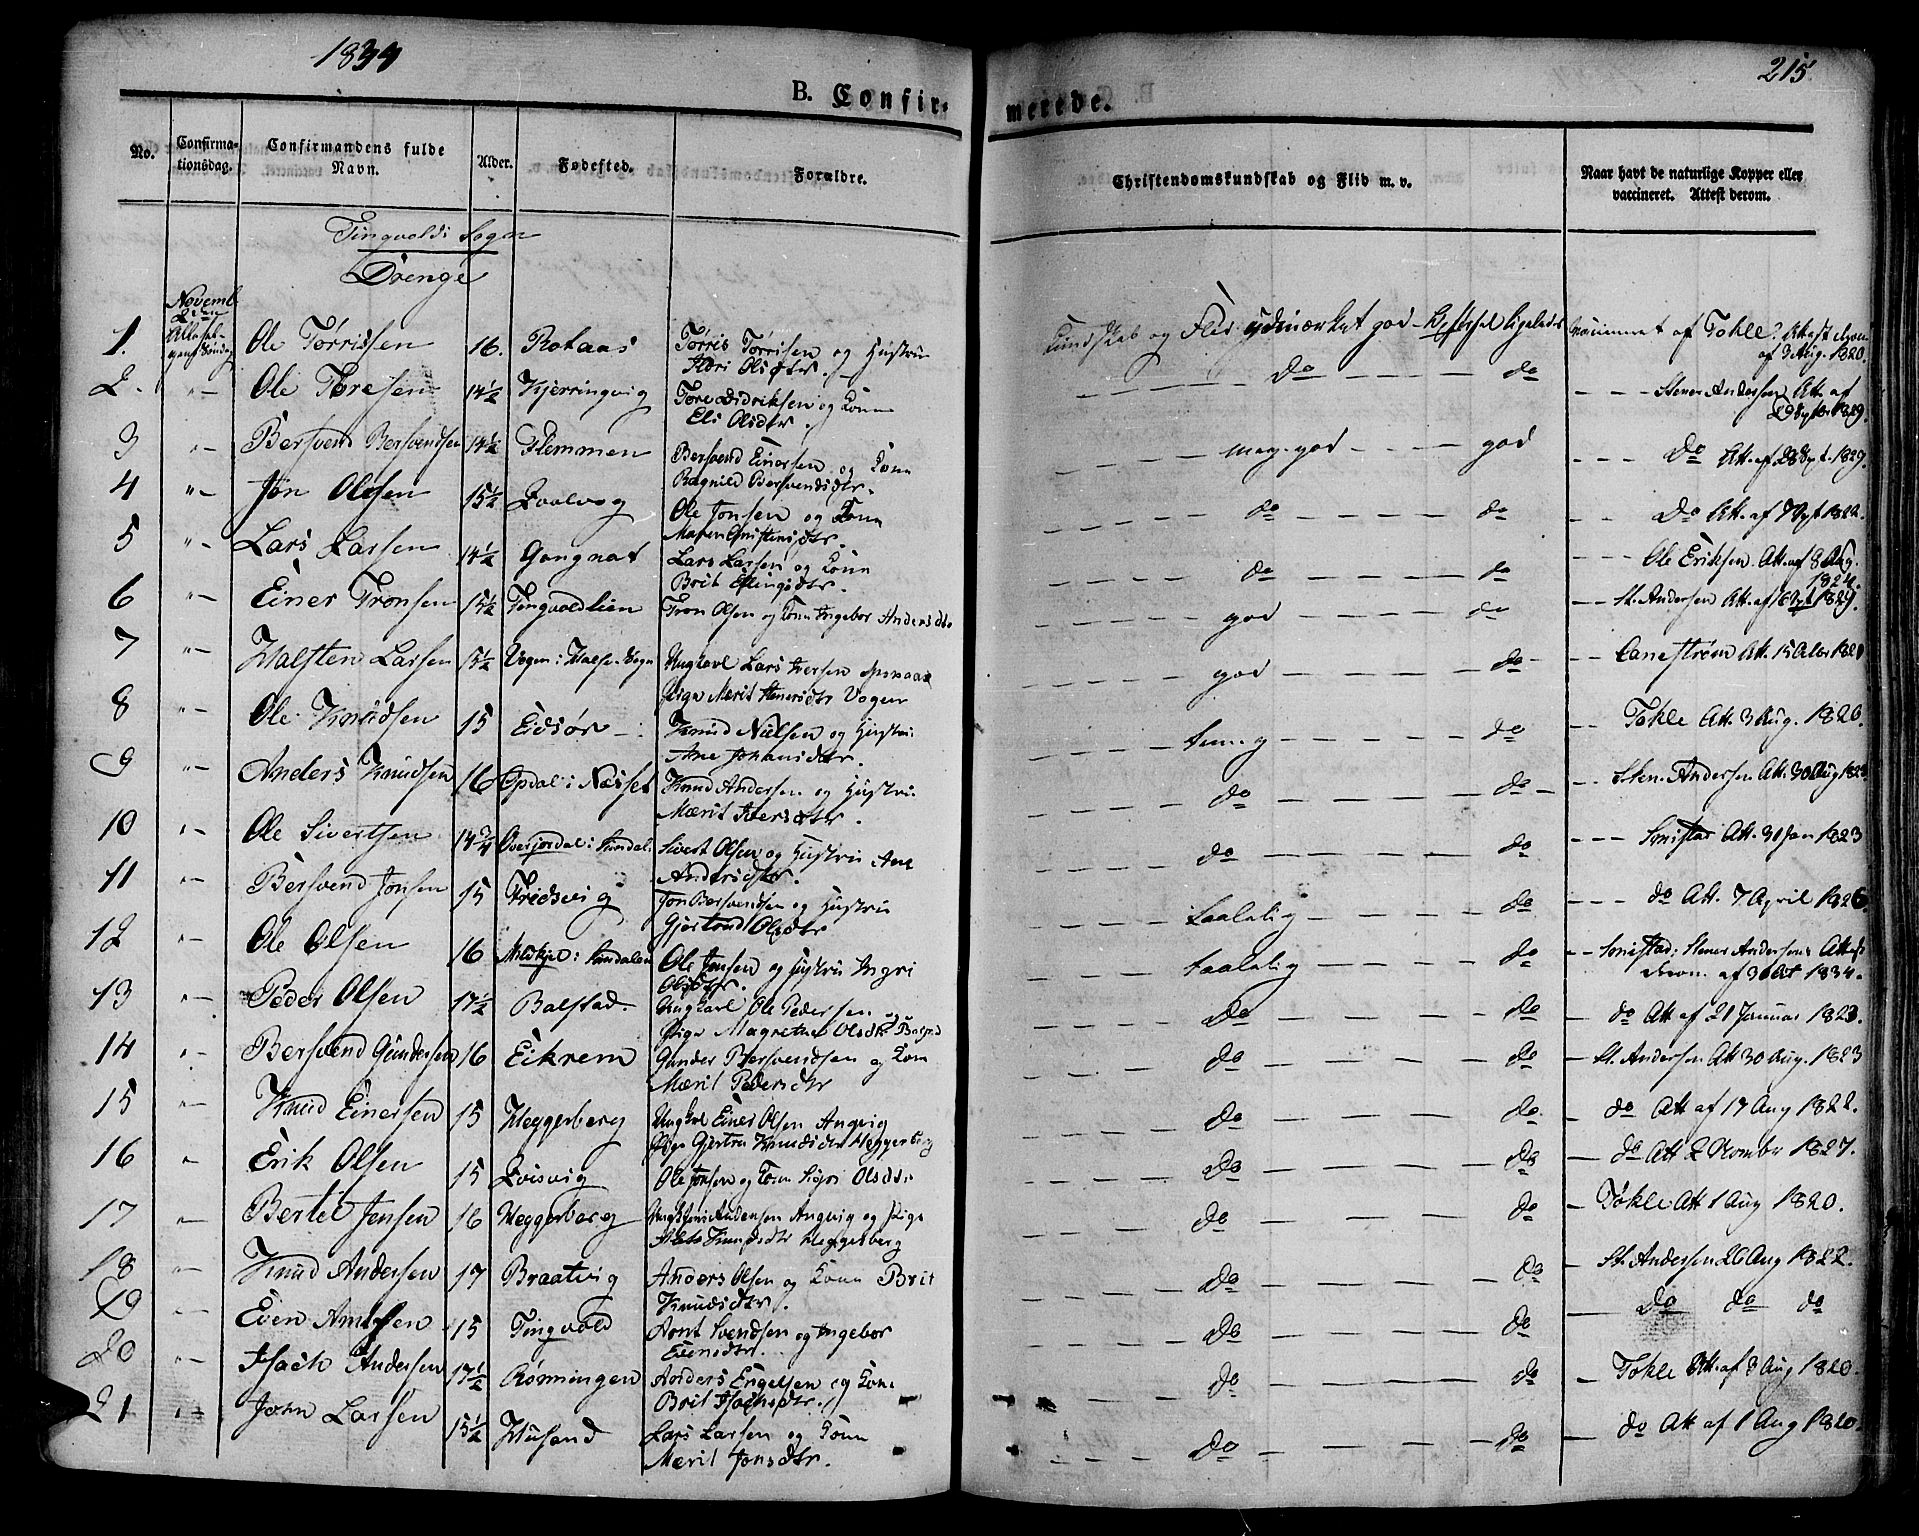 1834
215
B. Confir-
merede.
No.
Confirma-
tionsdag.
Confirmandens fulde
Navn.
Alder.
Fødested.
Forældre.
Christendomskundskab og Flid m. v.
Naar havt de naturlige Kopper eller
vaccineret. Attest derom.
Tingvolds Sogn
Drenge
Novemb
2den
Allehel-
gens Søndag
1. Ole Tørrissen 16. Rotaas Tørris Tørrisen og Hustru
Olsdtr. Kundskab og Flid ydmærket god - ligeledes af Tokle. Attest derom
af 3 Aug. 1820.
2. "- Ole Toresen 14½ Kjerringvig Tore Didriksen og Kone
Eli Olsdtr. do do Stener Andersen Att. af
1829.
3 "- Bersvend Bersvendsen 14½ Flemmen Bersvend Einersen og Kone
Ragnild Bersvendsdtr. meg. god god Do Att. af 1829.
4 "- Jon Olsen 15½ Ole Jonsen og Kone
Maren Christensdtr. do do Do Att. af 1822.
5 "- Lars Larsen 14½ Gangnat Lars Larsen og Kone
Brit Ellingsdtr. do do Ole Eriksen Att. af 8 Aug.
1824.
6 "- Einer Tronsen 15½ Tingvoldlien Tron Olsen og Kone Ingebor Andersdtr god do St. Andersen Att. af 1829.
7 "- Halsten Larsen 15½ Vogen i Halse Sogn Ungkarl Lars Iversen
Pige Merit Stenersdtr Vogen god do
8 "- Ole Knudsen 15 Eidsør Knud Nielsen og Hustru
Ane Johansdtr. do Tokle Att. 3 Aug. 1820.
9 "- Anders Knudsen 16 Opdal i Næsset Knud Andersen og Hustru
Mærit Itersdtr. do do Sten. Andersen Att. 30 Aug 1823
10 "- Ole Sivertsen 14¾ Sivert Olsen og Hustru Ane
Andersdtr. do do Att. 30 Jan 1823
11 "- Bersvend Jonsen 15 Fredsvig Jon Bersvendsen og Hustru
Gjertrud Olsdtr taalelig do do Att. 7 April 1826.
12 "- Ole Olsen 16 Ole Jonsen og Hustru Ingri
Olsdtr. taalelig do Stener Andersens Attest
derom. af 3 Oct 1834.
13 "- Peder Olsen 17½ Balstad Ungkarl Ole Pedersen og
Pige Magrethe Olsdtr Do do do Att af 21 Januar 1823.
14 "- Bersvend Gundersen 16 Eikrem Gunder Bersvendsen og Kone
Mærit Pedersdtr do do St. Andersen Att 30 Aug. 1823
15 "- Knud Einersen 15 Heggerberg Ungkarl Einer Olsen Angvig
Pige Gjertru Knudsdtr Heggerberg do do do Att af 17 Aug 1822.
16 " Erik Olsen 15 Qvisvig Ole Jonsen og Kone Sigri Olsdtr Do do do Att 2 Novmbr 1827.
17 "- Bertel Jensen 16 Heggerberg Angvig og Pige
Knudsdtr Heggerberg do do Tokle Att 1 Aug 1820.
18 "- Knud Andersen 17 Braatvig Anders Olsen og Kone Brit
Knudsdtr. do do St. Andersen 26 Aug 1822.
19 "- Even Amtsen 15 Tingvold Aont Svendsen og Ingebor
Evensdtr. Do do Do do do
20 "- Isach Andersen 17½ Rønningen Anders Engelsen og Kone
Brit Isachsdtr. do do Tokle Att. af 3 Aug 1820.
21 "- John Larsen 15½ Husand Lars Larsen og Kone
Merit Jonsdtr. Do do do Att af 1 Aug 1820.